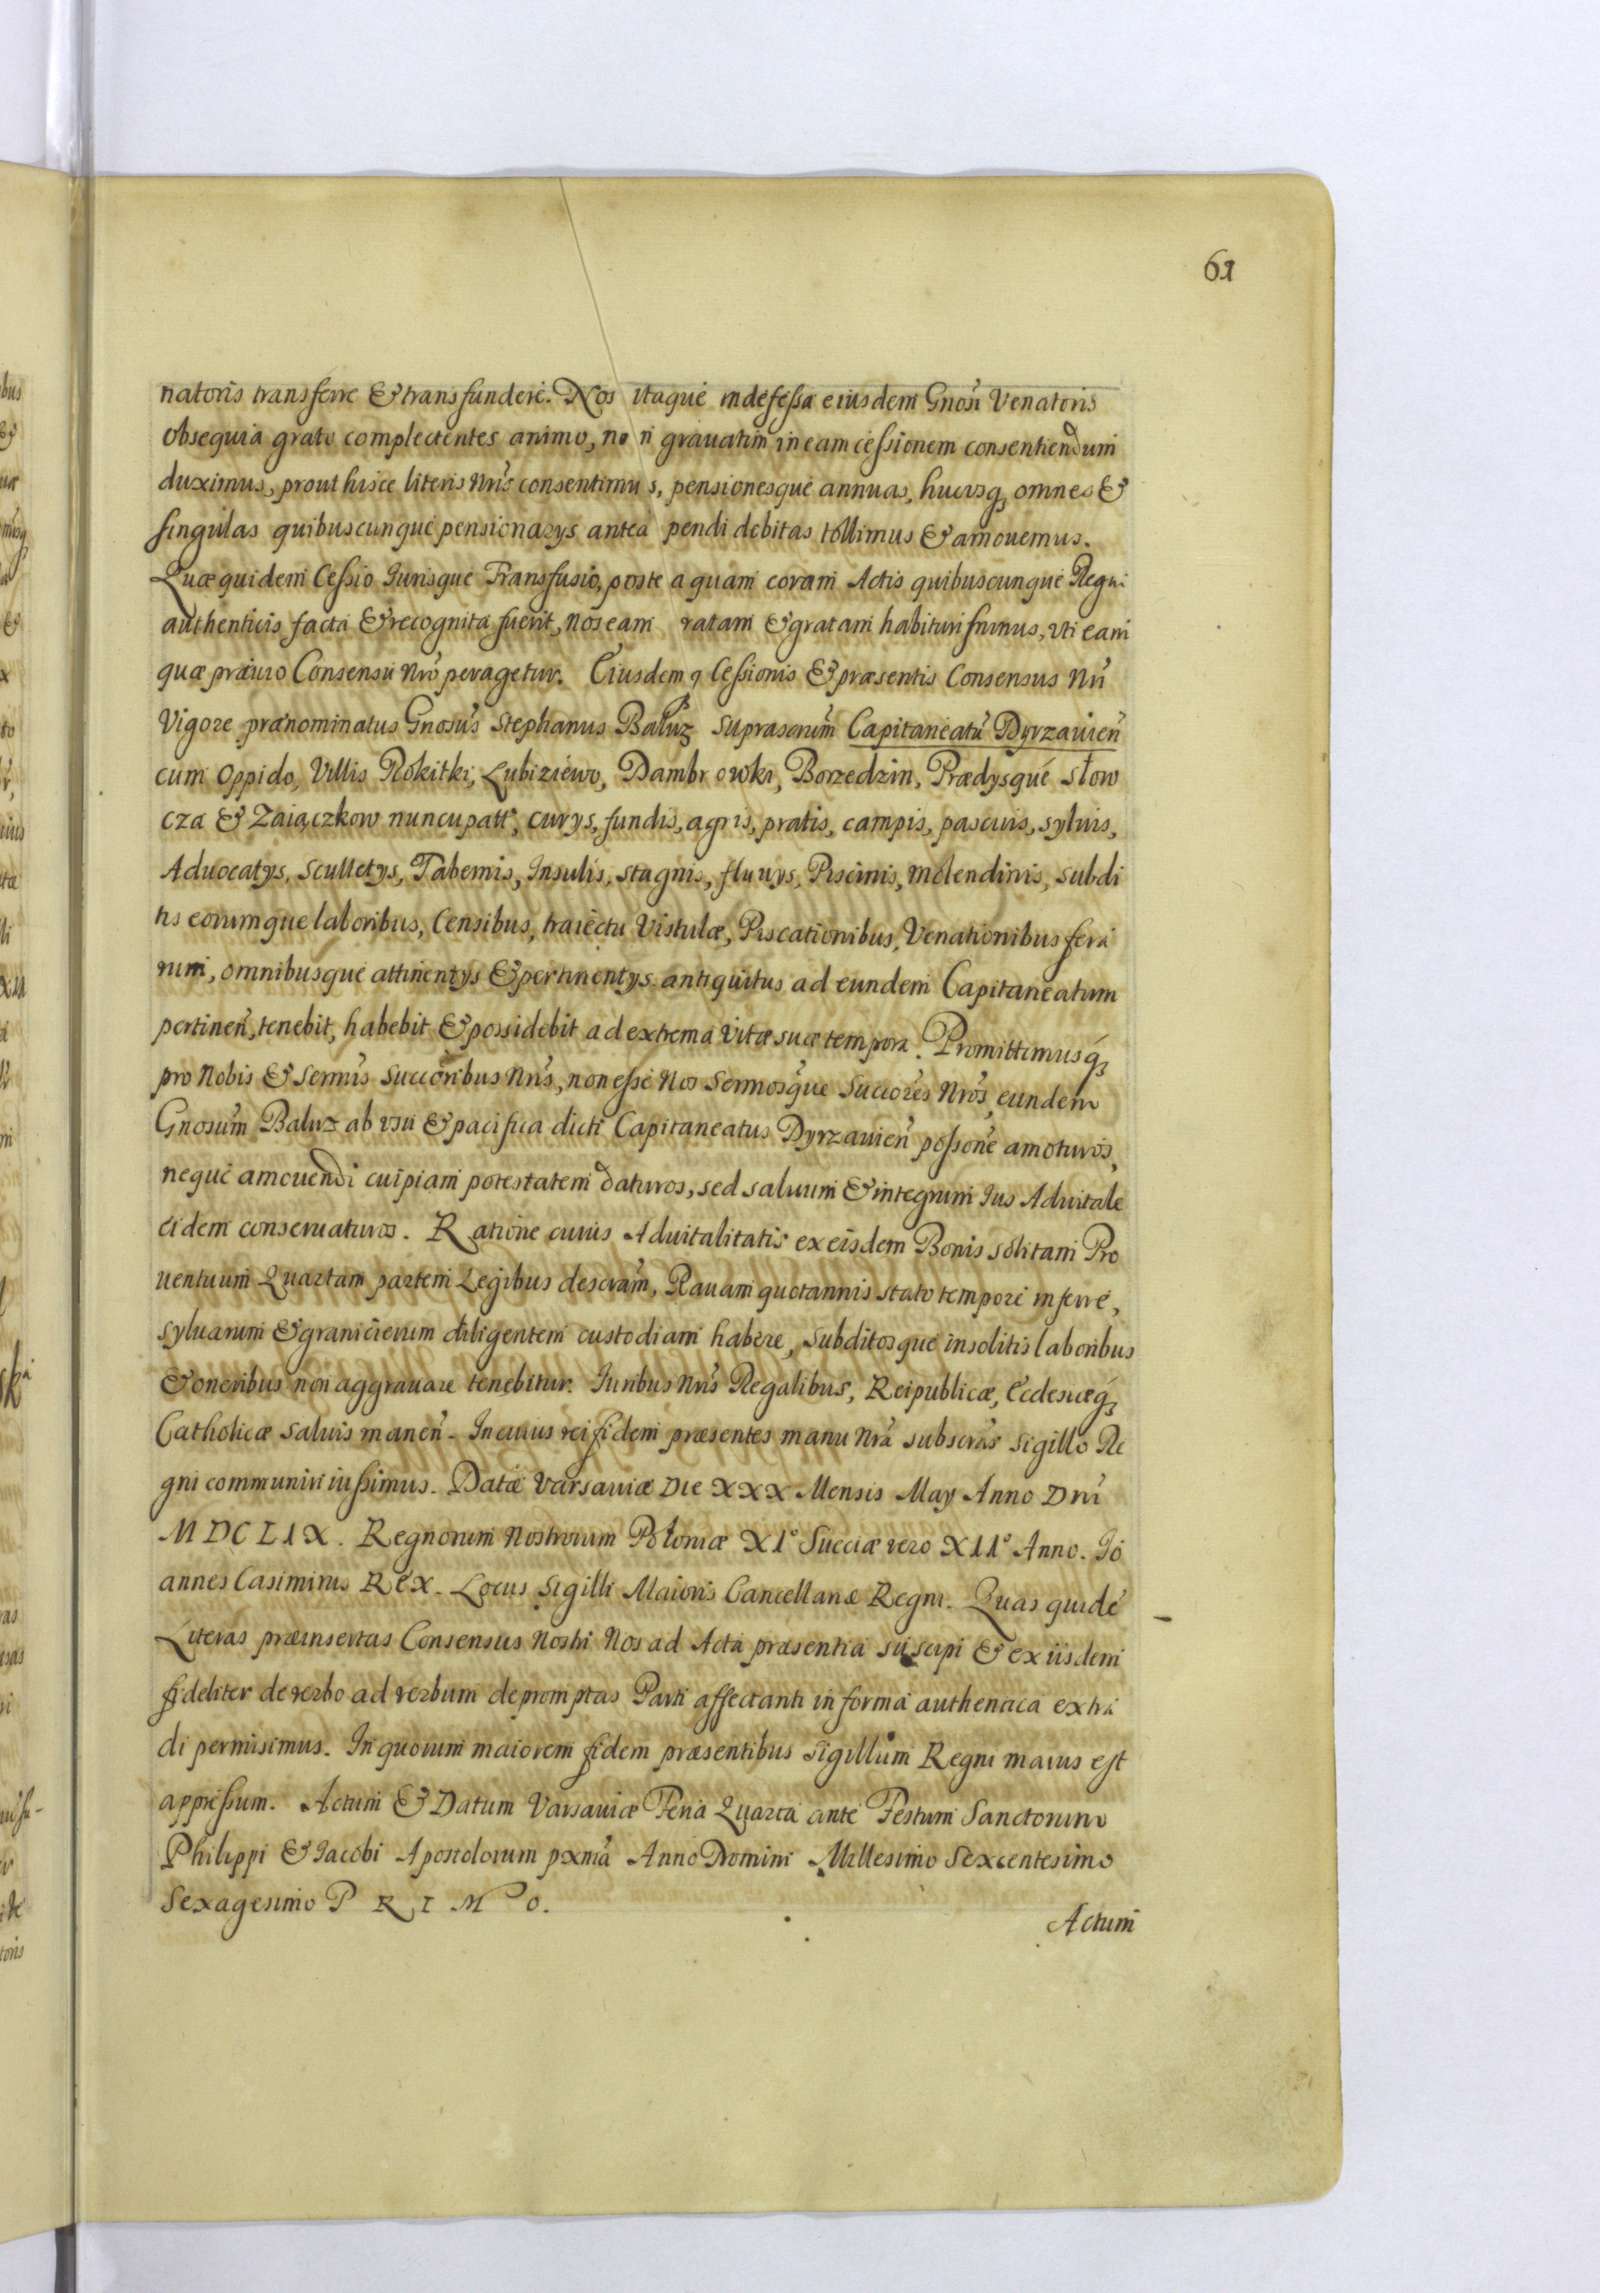 61
natoris transferre & transfundere. Nos itaque indefessa eiusdem Gnosi Venatoris
obsequia grato complectentes animo, non grauatim in eam cessionem consentiendum
duximus, prout hisce literis Nris consentimus, pensionesque annuas, hucusq, omnes &
singulas quibuscunque pensionarys antea pendi debitas tollimus & amouemus.
Quæ quidem Cessio Iurisque Transfusio, postea quam coram Actis quibuscunque Regni
authenticis facta & recognita fuerit, nos eam ratam & gratam habituri sumus, vti eam
quæ præuio Consensu Nro peragetur. Eiusdemq Cessionis & præsentis Consensus Nri
Vigore prænominatus Gnosus Stephanus Baluz suprascrum Capitaneatu Dyrzauien
cum Oppido, Villis Rokitki, Lubiziewo, Dambrowka, Borzedzin, Prædysque Słow
cza & Zaiączkow nuncupatt, curys, fundis, agris, pratis, campis, pascuis, syluis,
Aduocatys, Scultetys, Tabernis, Insulis, stagnis, fluuys, Piscinis, molendinis, subdi
tis eorumque laboribus, Censibus, traiectu Vistulæ, Piscationibus, Venationibus fera
rum, omnibusque attinentys & pertinentys antiquitus ad eundem Capitaneatum
pertinen, tenebit, habebit & possidebit ad extrema Vitæ suæ tempora. Promittimusq,
pro Nobis & Sermis Succoribus Nris, non esse Nos Sermosque Succores Nros, eundem
Gnosum Baluz ab vsu & pacifica dicti Capitaneatus Dyrzauien possone amoturos,
neque amouendi cuipiam potestatem daturos, sed saluum & integrum Ius Aduitale
eidem conseruaturos. Ratione cuius Aduitalitatis ex eisdem Bonis solitam Pro
uentuum Quartam partem Legibus descram, Rauam quotannis stato tempore inferre,
syluarum & granicierum diligentem custodiam habere, subditosque insolitis laboribus
& oneribus non aggrauare tenebitur. Iuribus Nris Regalibus, Reipublicæ, Ecclesiæq,
Catholicæ saluis manen. In cuius rei fidem præsentes manu Nra subscras Sigillo Re
gni communiri iussimus. Datæ Varsauiæ Die XXX Mensis May Anno Dni
MDCLIX. Regnorum Nostrorum Poloniæ XI° Sueciæ vero XII° Anno. Io
annes Casimirus Rex. Locus Sigilli Maioris Cancellariæ Regni. Quas quide
Literas præinsertas Consensus Nostri Nos ad Acta præsentia suscipi & ex iisdem
fideliter de verbo ad verbum depromptas Parti affectanti in forma authentica extra
di permisimus. In quorum maiorem fidem præsentibus sigillum Regni maius est
appressum. Actum & Datum Varsauiæ Feria Quarta ante Festum Sanctorum
Philippi & Iacobi Apostolorum pxma Anno Domini Millesimo Sexcentesimo
Sexagesimo PRIMO.
Actum